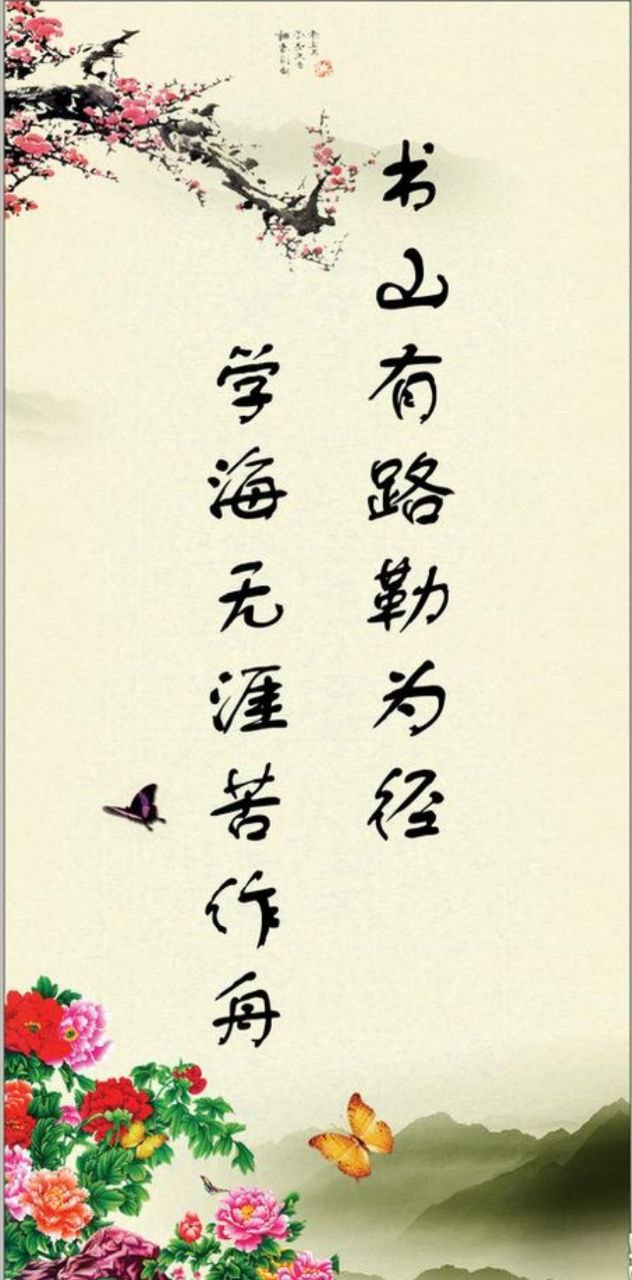 书山有路勒为径
学海无涯苦作舟